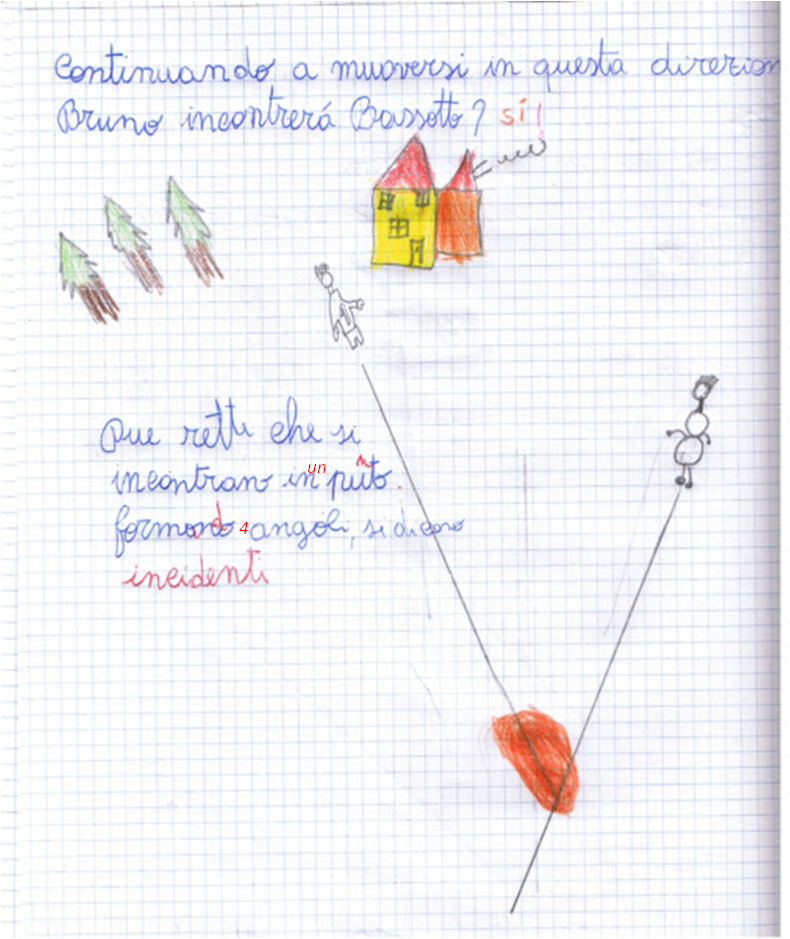 Continuando a muoversi in questa direzion
Bruno incontrerá Bassotto? sí!
Due rette che si
incontrano in un punto.
formando 4 angoli, si dicono
incidenti